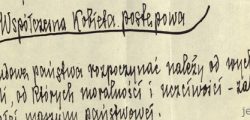 Współczesna Kobieta postępowa
udowa państwa rozpoczynać należy od wych
i, od których moralności i uczciwości - zal
maszyny państwowej.
je